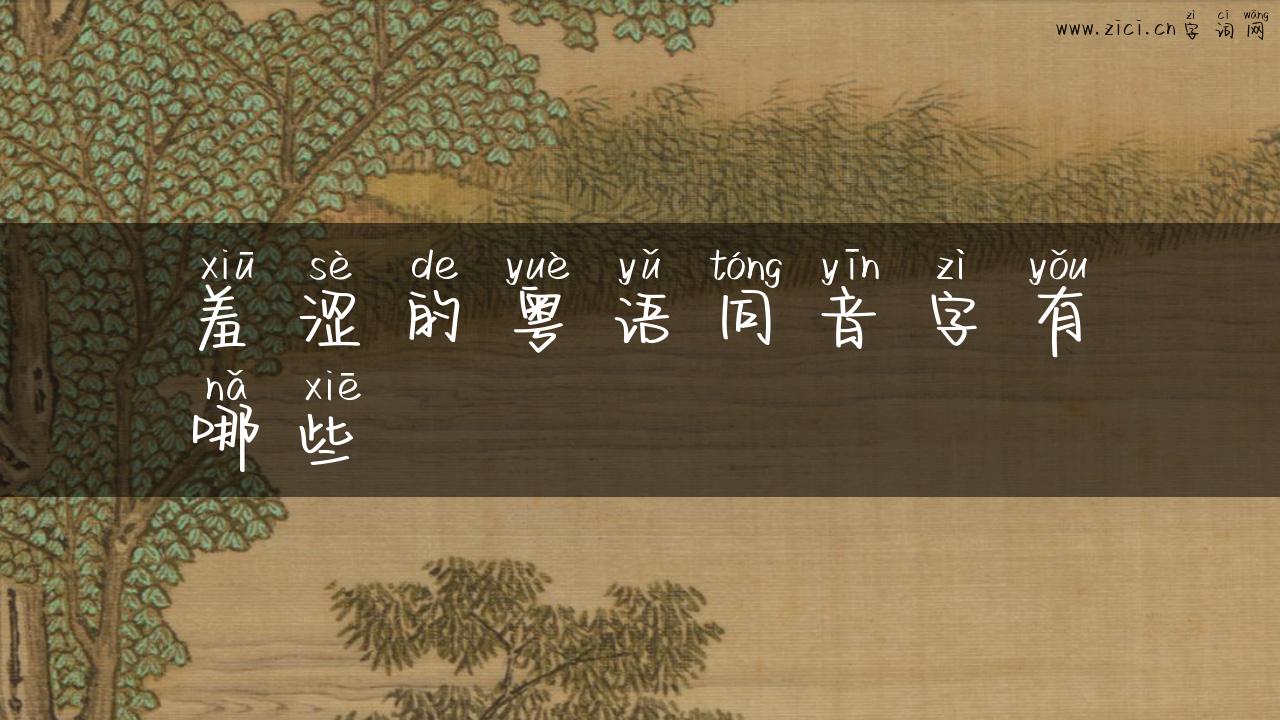 zì cí wǎng
www.zici.cn字词网
xiū sè de yuè yǔ tóng yīn zì yǒu
羞涩的粤语同音字有
nǎ xiē
哪些